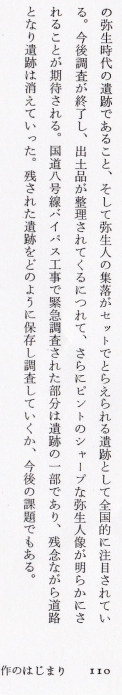 の弥生時代の遺跡であること、そして弥生人の集落がセットでとらえられる遺跡として全国的に注目されてい
る。今後調査が終了し、出土品が整理されてくるにつれて、さらにピントのシャープな弥生人像が明らかにさ
れることが期待される。国道八号線バイパス工事で緊急調査された部分は遺跡の一部であり、残念ながら道路
となり遺跡は消えていった。残された遺跡をどのように保存し調査していくか、今後の課題でもある。
作のはじまり 110